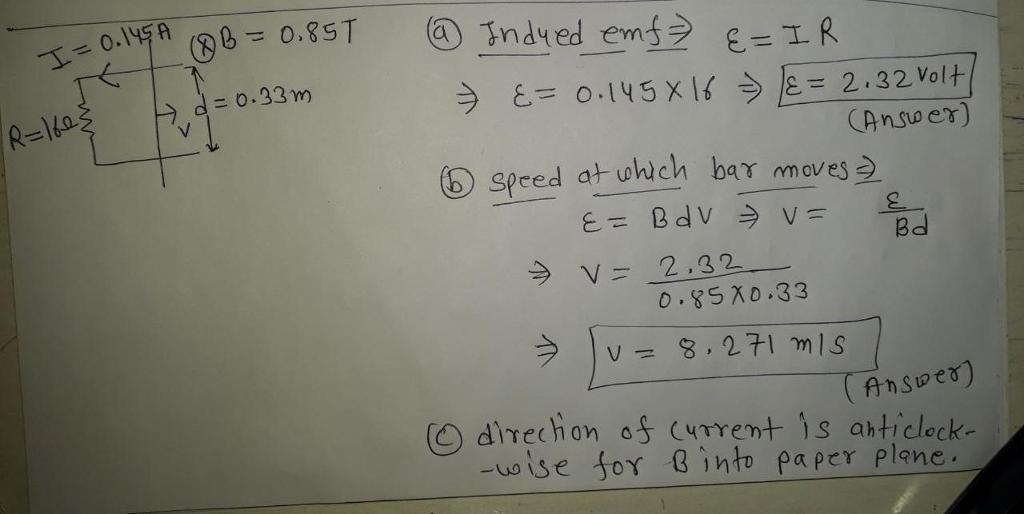 I = 0.145A
⊗B = 0.85T
d = 0.33m
V
R=16Ω
(a) Indyed emf ⇒ ε = I R
⇒ ε = 0.145 X 16 ⇒ ε = 2.32 Volt
(Answer)
(b) speed at which bar moves ⇒
ε = BdV ⇒ V = ε / Bd
⇒ V = 2.32 / 0.85 X 0.33
⇒ V = 8.271 m/s
(Answer)
(c) direction of current is anticlock-
-wise for B into paper plane.